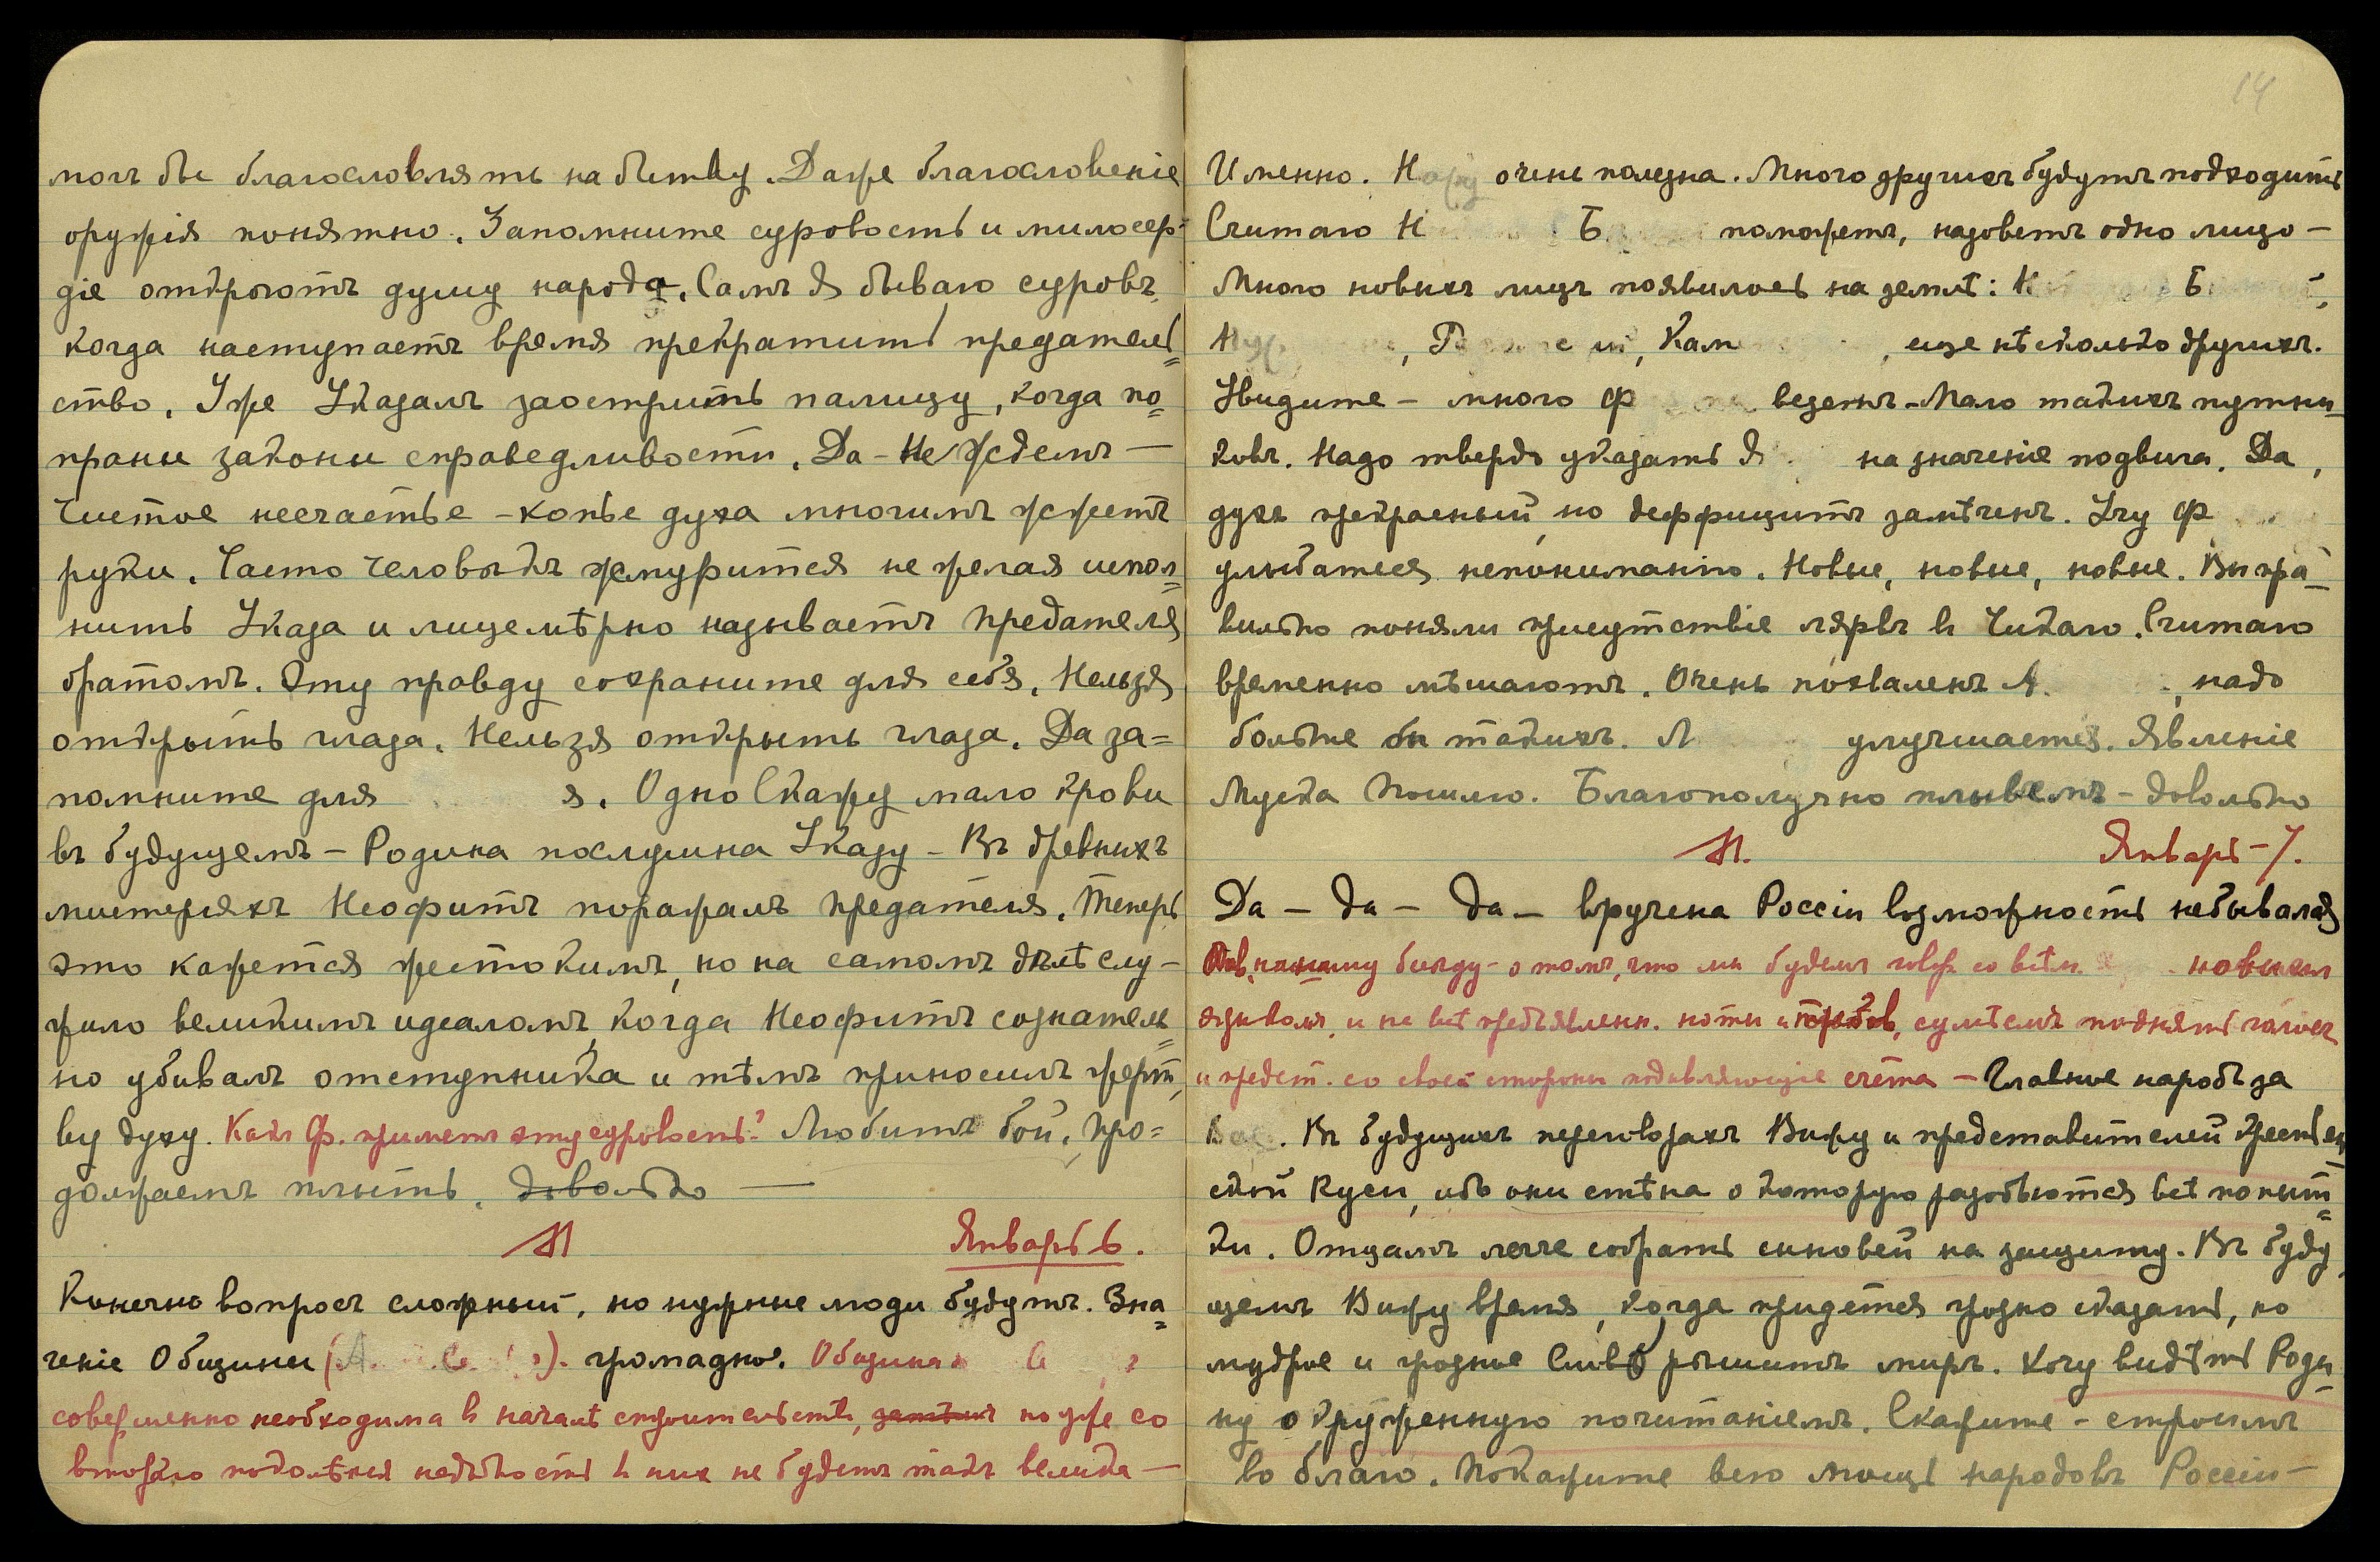 могъ бы благословлять на битву. Даже благословеніе
оружія понятно. Запомните суровость и милосер-
діе открютъ душу народа. Самъ Я бываю суровъ,
когда наступаетъ время прекратить предатель=
ство. Уже Указалъ заострить палицу, когда по=
праны законы справедливости. Да – Не Ждемъ —
Чистое несчастье – копье духа многимъ жжетъ
руки. Часто человѣкъ жмурится не желая испол=
нить Указа и лицемѣрно называетъ предателя
братомъ. Эту правду сохраните для себя. Нельзя
открыть глаза. Нельзя открыть глаза. Да за=
помните для я. Одно Скажу мало крови
въ будущемъ – Родина послушна Указу – Въ древнихъ
мистеріяхъ Неофитъ поражалъ предателя. Теперь
это кажется жестокимъ, но на самомъ дѣлѣ слу-
жило великимъ идеаломъ, когда Неофитъ сознатель=
но убивалъ отступника и тѣмъ приносилъ жерт
ву духу. Какъ Ф. приметъ эту суровость? Любитъ бой. Про=
должаемъ плыть. Довольно —
М Январь 6.
Конечно вопросъ сложный, но нужные люди будутъ. Зна=
ченіе Общины (А. ). громадное. Община
совершенно необходима в началѣ строительств, затѣмъ но уже со
второго поколѣнія надобность в них не будетъ такъ велика —
14
Именно. Н очень полезна. Много другихъ будутъ подходить
Считаю Н Б поможетъ, назоветъ одно лицо –
Много новыхъ лицъ появилось на землѣ: К Б
, Г , Кам , еще нѣсколько другихъ.
Увидите – много Ф везенъ – Мало такихъ путни=
ковъ. Надо твердо указать Я на значеніе подвига. Да,
духъ прекрасный, но деффицитъ замѣченъ. Учу Ф
улыбаться непониманію. Новые, новые, новые. Вы пра=
вильно поняли присутствіе лярвъ в Чикаго. Считаю
временно мѣшаютъ. Очень похваленъ А. , надо
больше бы такихъ. Л улучшается. Явленіе
Муска Пошлю. Благополучно плывемъ – довольно
М. Январь – 7.
Да – да – да – вручена Россіи возможность небывалая
нашу бесѣду – о томъ, что мы будемъ говор. со всѣм новымъ
языкомъ, и на всѣ предъявленн. ноты и требов. сумѣемъ поднять голосъ
и предст. со своей стороны подавляющіе счета – Главное народъ за
Вас. Въ будущихъ переговорахъ Вижу и представителей крестьян
ской Руси, ибо они стѣна о которую разобьются всѣ попыт=
ки. Отцамъ легче собрать сыновей на защиту. Въ буду
щемъ Вижу время, когда придется грозно сказать, но
мудрое и грозное Слово рѣшитъ миръ. Хочу видѣть Роди=
ну окруженную почитаніемъ. Скажите – строимъ
во благо. Покажите всю мощь народовъ Россіи –